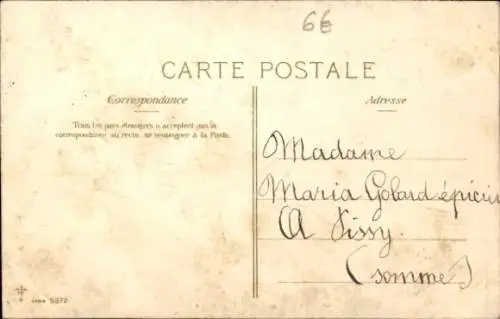 6€
CARTE POSTALE
Correspondance
Adresse
Tous les pays étrangers n'acceptent pas la
correspondance au recto. se renseigner à la Poste.
Madame
Maria Gobard épicier
A Tissy.
(somme)
5872